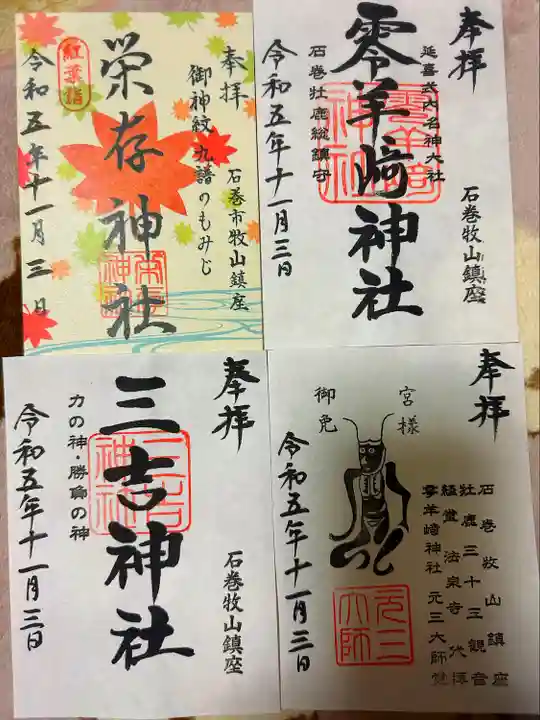 奉拝
御神紋 九譜のもみじ
石巻市牧山鎮座
紅葉詣
栄存神社
令和五年十一月三日
奉拝
延喜式内名神大社
石巻牧山鎮座
零羊崎神社
石巻牡鹿総鎮守
令和五年十一月三日
奉拝
石巻牧山鎮座
三吉神社
力の神・勝負の神
令和五年十一月三日
奉拝
石巻牧山鎮座
牡鹿三十三観音
法泉寺
零羊崎神社 元三大師
宮様
御免
元三大師
令和五年十一月三日